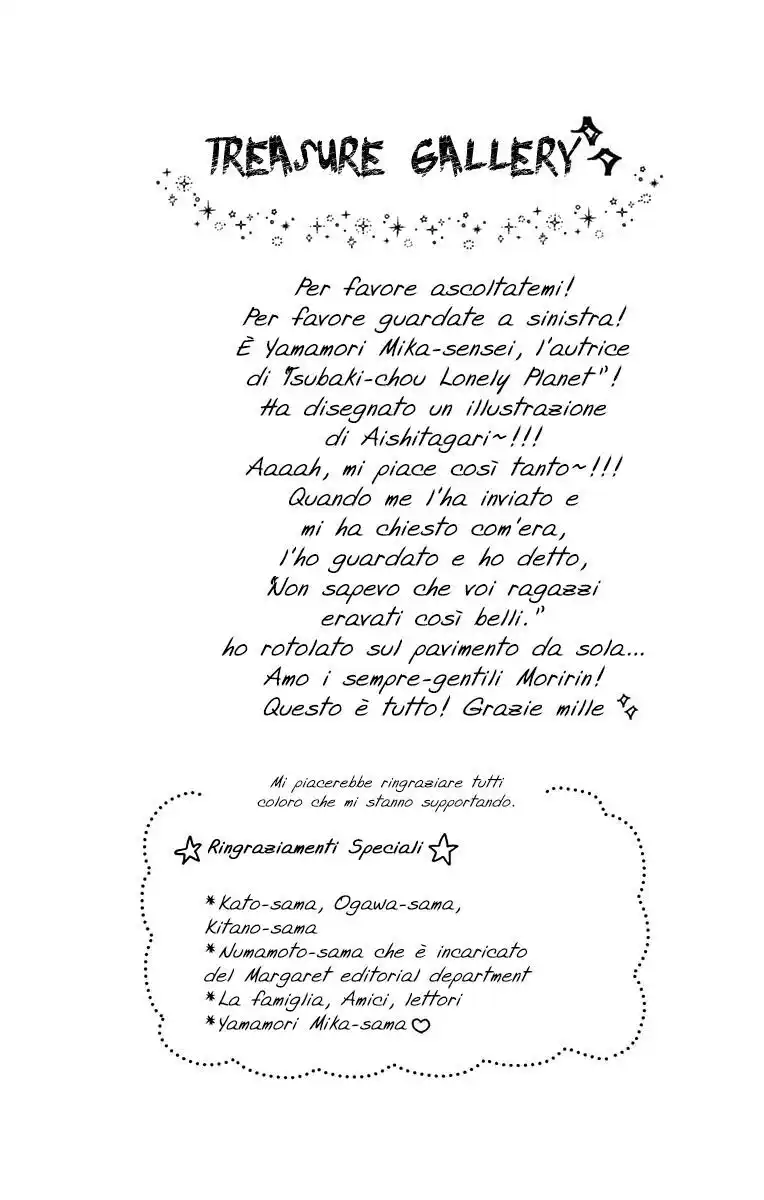 TREASURE GALLERY
Per favore ascoltatemi!
Per favore guardate a sinistra!
È Yamamori Mika-sensei, l'autrice
di "Tsubaki-chou Lonely Planet"!
Ha disegnato un illustrazione
di Aishitagari~!!!
Aaaah, mi piace così tanto~!!!
Quando me l'ha inviato e
mi ha chiesto com'era,
l'ho guardato e ho detto,
"Non sapevo che voi ragazzi
eravati così belli."
ho rotolato sul pavimento da sola...
Amo i sempre-gentili Moririn!
Questo è tutto! Grazie mille
Mi piacerebbe ringraziare tutti
coloro che mi stanno supportando.
Ringraziamenti Speciali
*Kato-sama, Ogawa-sama,
Kitano-sama
*Numamoto-sama che è incaricato
del Margaret editorial department
*La famiglia, Amici, lettori
*Yamamori Mika-sama♡